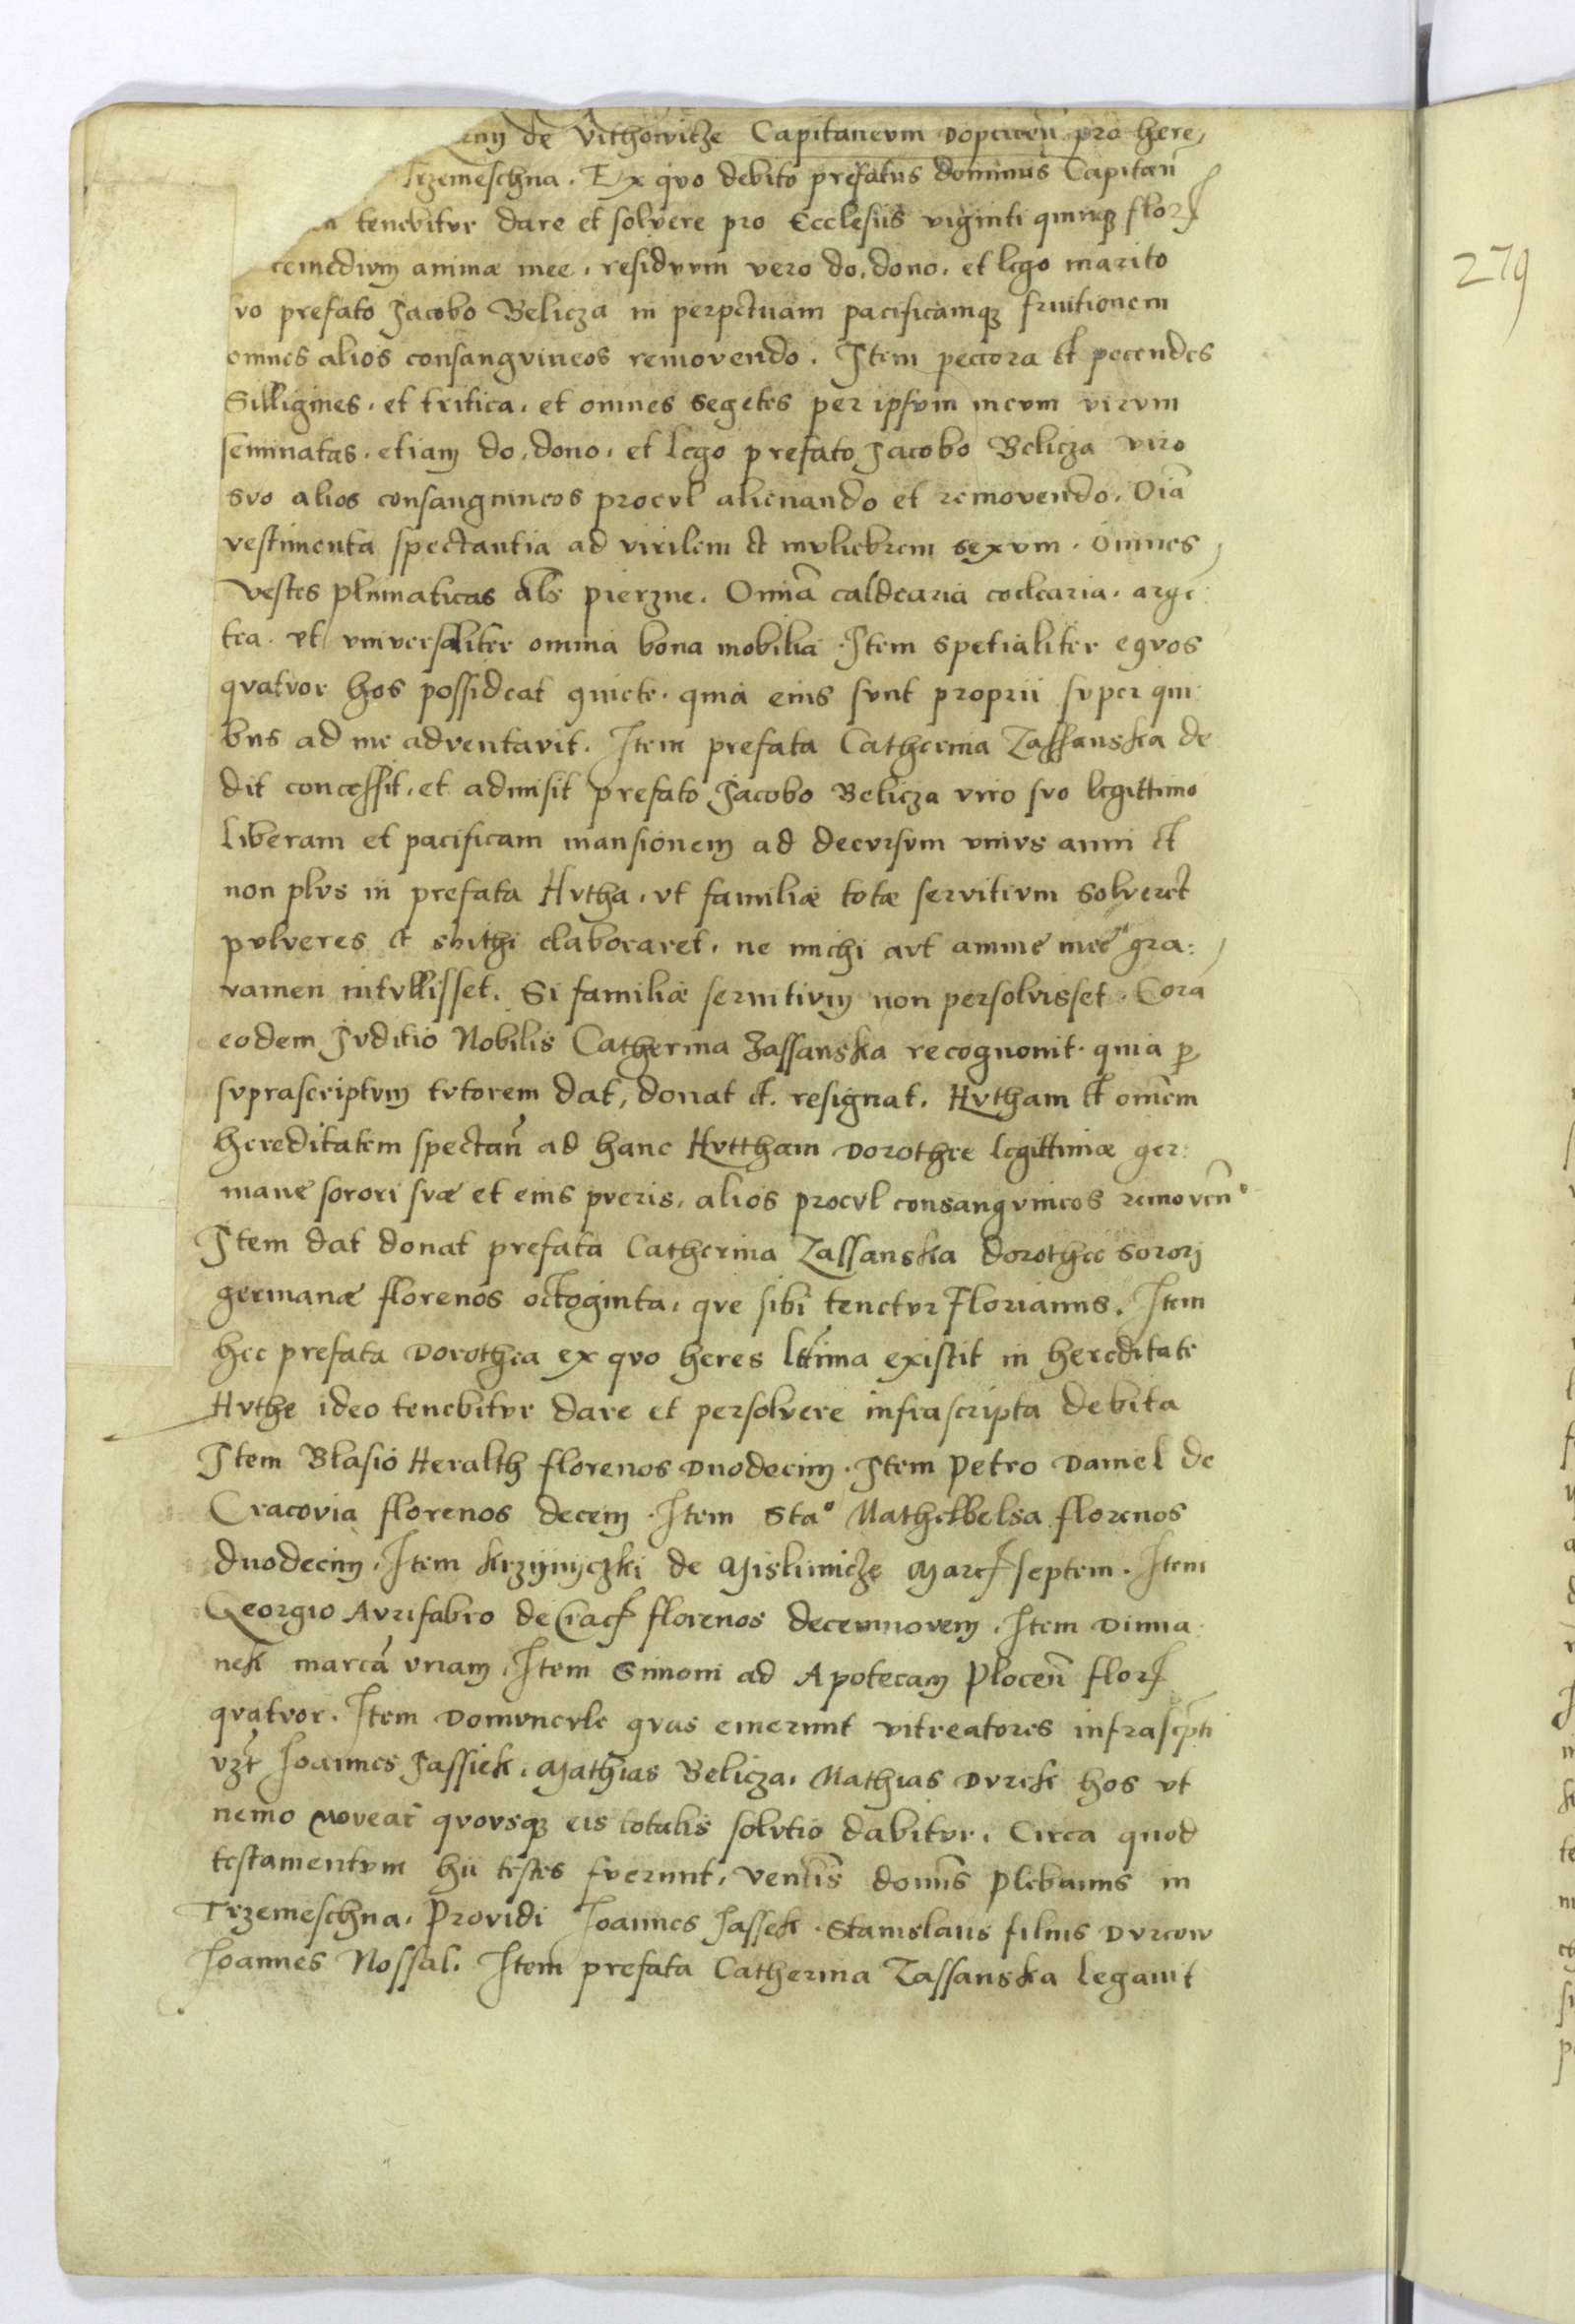 de Vithowicze Capitaneum pro here,
Trzemeschna. Ex quo debito prefatus dominus Capitan̄
tenebitur dare et solvere pro Ecclesiis viginti quinqꝫ flor
remedium animæ mee, residuum vero do, dono, et lego marito
vo prefato Jacobo Belicza in perpetuam pacificamqꝫ fruitionem
omnes alios consangvineos removendo. Item peccora et pecendes
Silligines, et tritica, et omnes segetes per ipsum meum virum
seminatas, etiam do, dono, et lego prefato Jacobo Belicza viro
svo alios consanguineos procul alienando et removendo. Oīa
vestimenta spectantia ad virilem et muliebrem sexum. Omnes
vestes plumaticas als pierzne. Omīa caldearia coclearia, argē:
tea. vt universaliter omnia bona mobilia. Item spetialiter equos
qvatuor hos possideat quiete, quia eius sunt proprii super qui:
bus ad me adventavit. Item prefata Catherina Zassanska de
dit concessit, et admisit prefato Jacobo Belicza viro suo legittimo
liberam et pacificam mansionem ad decursum unius anni et
non plus in prefata Hutha, ut familiæ totæ servitium solveret
pulveres et elaboraret, ne michi aut anime mee gra:
vamen intullisset. Si familiæ servitium non persolvisset. Corā
eodem Juditio Nobilis Catherina Zassanska recognovit. quia ꝑ
suprascriptum tutorem dat, donat et resignat. Hutham et omēm
hereditatem spectan̄ ad hanc Huttham Dorothee legittimæ ger:
manæ sorori suæ et eius pueris, alios procul consanguineos removen̄
Item dat donat prefata Catherina Zassanska dorothee sororj
germanæ florenos octoginta, que sibi tenetur Florianus. Item
hec prefata Dorothea ex quo heres lttīma existit in hereditate
Huthe ideo tenebitur dare et persolvere infrascripta debita
Item Blasio Heralth florenos Duodecim. Item Petro Daniel de
Cracovia florenos decem. Item Staº florenos
duodecim, Item de septem. Item
Georgio Aurifabro de Crac florenos decemnovem, Item Dimia
nek marcā unam, Item Simoni ad Apotecam Plocen̄ flor
qvatvor. Item Domuncule quas emerunt vitreatores infrascpti
vzt Joannes Jassiek, Mathias Belicza, Mathias Durek hos ut
nemo moveat quousqꝫ eis totalis solutio dabitur. Circa quod
testamentum hii testes fuerunt, domīs Plebanus in
Trzemeschna. Providi Joannes Jassek. Stanislaus filius Durcow
Joannes Nossal. Item prefata Catherina Zassanska legavit
279